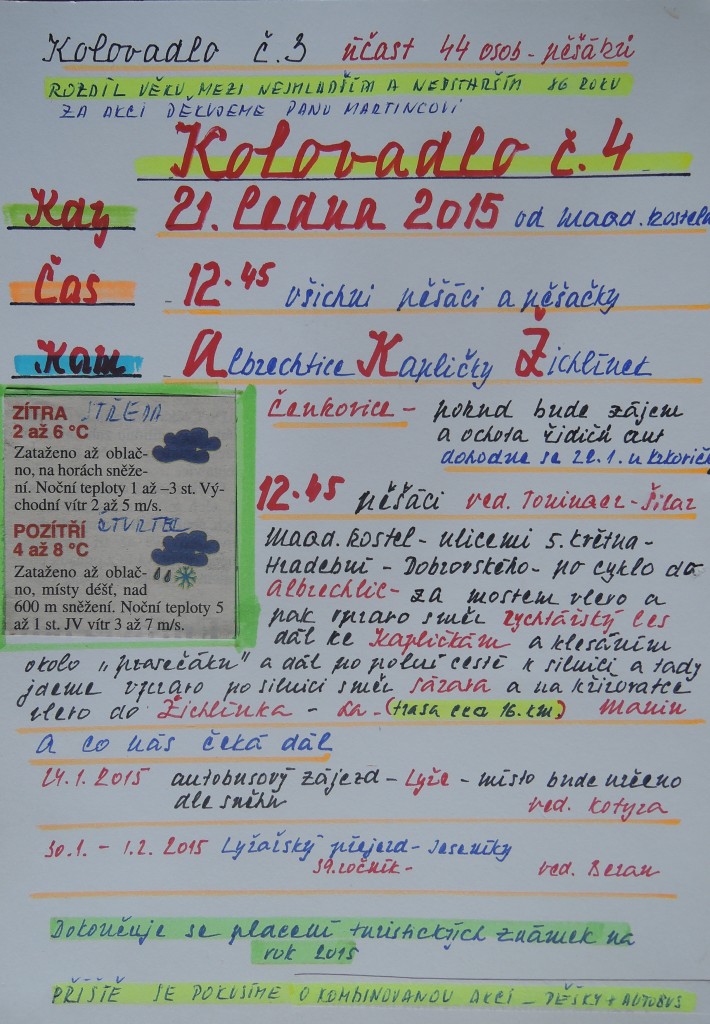 Kolovadlo č.3 účast 44 osob - pěšáků
ROZDÍL VĚKU MEZI NEJMLADŠÍM A NEJSTARŠÍM 86 ROKŮ
ZA AKCI DĚKUJEME PANU MARTINCOVI
Kolovadlo č.4
Kdy 21. ledna 2015 od maad. kostela
Čas 12.45 všichni pěšáci a pěšačky
Kam Albrechtice Kapličky Žichlínek
Čenkovice - pokud bude zájem
a ochota řidičů aut
dohodne se 20.1. u
ZÍTRA STŘEDA
2 až 6 °C
Zataženo až oblač-
no, na horách sněže-
ní. Noční teploty 1 až –3 st. Vý-
chodní vítr 2 až 5 m/s.
POZÍTŘÍ ČTVRTEK
4 až 8 °C
Zataženo až oblač-
no, místy déšť, nad
600 m sněžení. Noční teploty 5
až 1 st. JV vítr 3 až 7 m/s.
12.45 pěšáci ved. - Šilar
maad. kostel - ulicemi 5. května -
Hradební - Dobrovského - po cyklo do
Albrechtic - za mostem vlevo a
pak vpravo směr rychtářský les
dál ke Kapličkám a klesáním
okolo „prasečáku" a dál po polní cestě k silnici a tady
jdeme vpravo po silnici směr Sázava a na křižovatce
vlevo do Žichlínka - (trasa cca 16. km.)
A co nás čeká dál
24.1. 2015 autobusový zájezd - Lyže - místo bude určeno
dle sněhu ved. Kotyza
30.1. - 1.2. 2015 Lyžařský přejezd - Jeseníky
39. ročník - ved. Beran
Dokončuje se placení turistických známek na
rok 2015
PŘÍŠTĚ SE POKUSÍME O KOMBINOVANOU AKCI - PĚŠKY + AUTOBUS